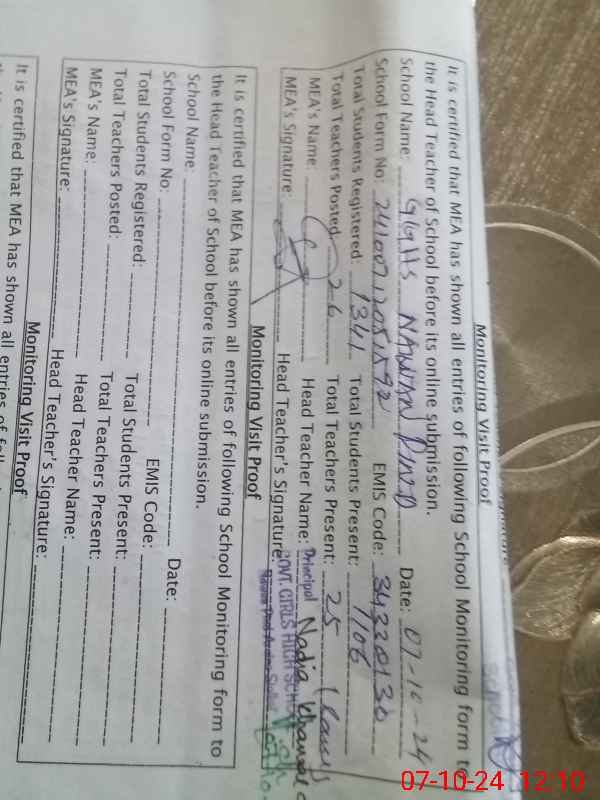 Monitoring Visit Proof
It is certified that MEA has shown all entries of following School Monitoring form to
the Head Teacher of School before its online submission.
School Name: GGHS NAWAN PIND Date: 07-10-24
School Form No: EMIS Code: 34330130
Total Students Registered: 1341 Total Students Present: 1106
Total Teachers Posted: 26 Total Teachers Present: 25
MEA's Name: Head Teacher Name: Nadia
MEA's Signature: Head Teacher's Signature:
Principal
GOVT. GIRLS HIGH SCHOOL
Monitoring Visit Proof
It is certified that MEA has shown all entries of following School Monitoring form to
the Head Teacher of School before its online submission.
School Name: Date:
School Form No: EMIS Code:
Total Students Registered: Total Students Present:
Total Teachers Posted: Total Teachers Present:
MEA's Name: Head Teacher Name:
MEA's Signature: Head Teacher's Signature:
Monitoring Visit Proof
It is certified that MEA has shown all entries of
07-10-24 12:10